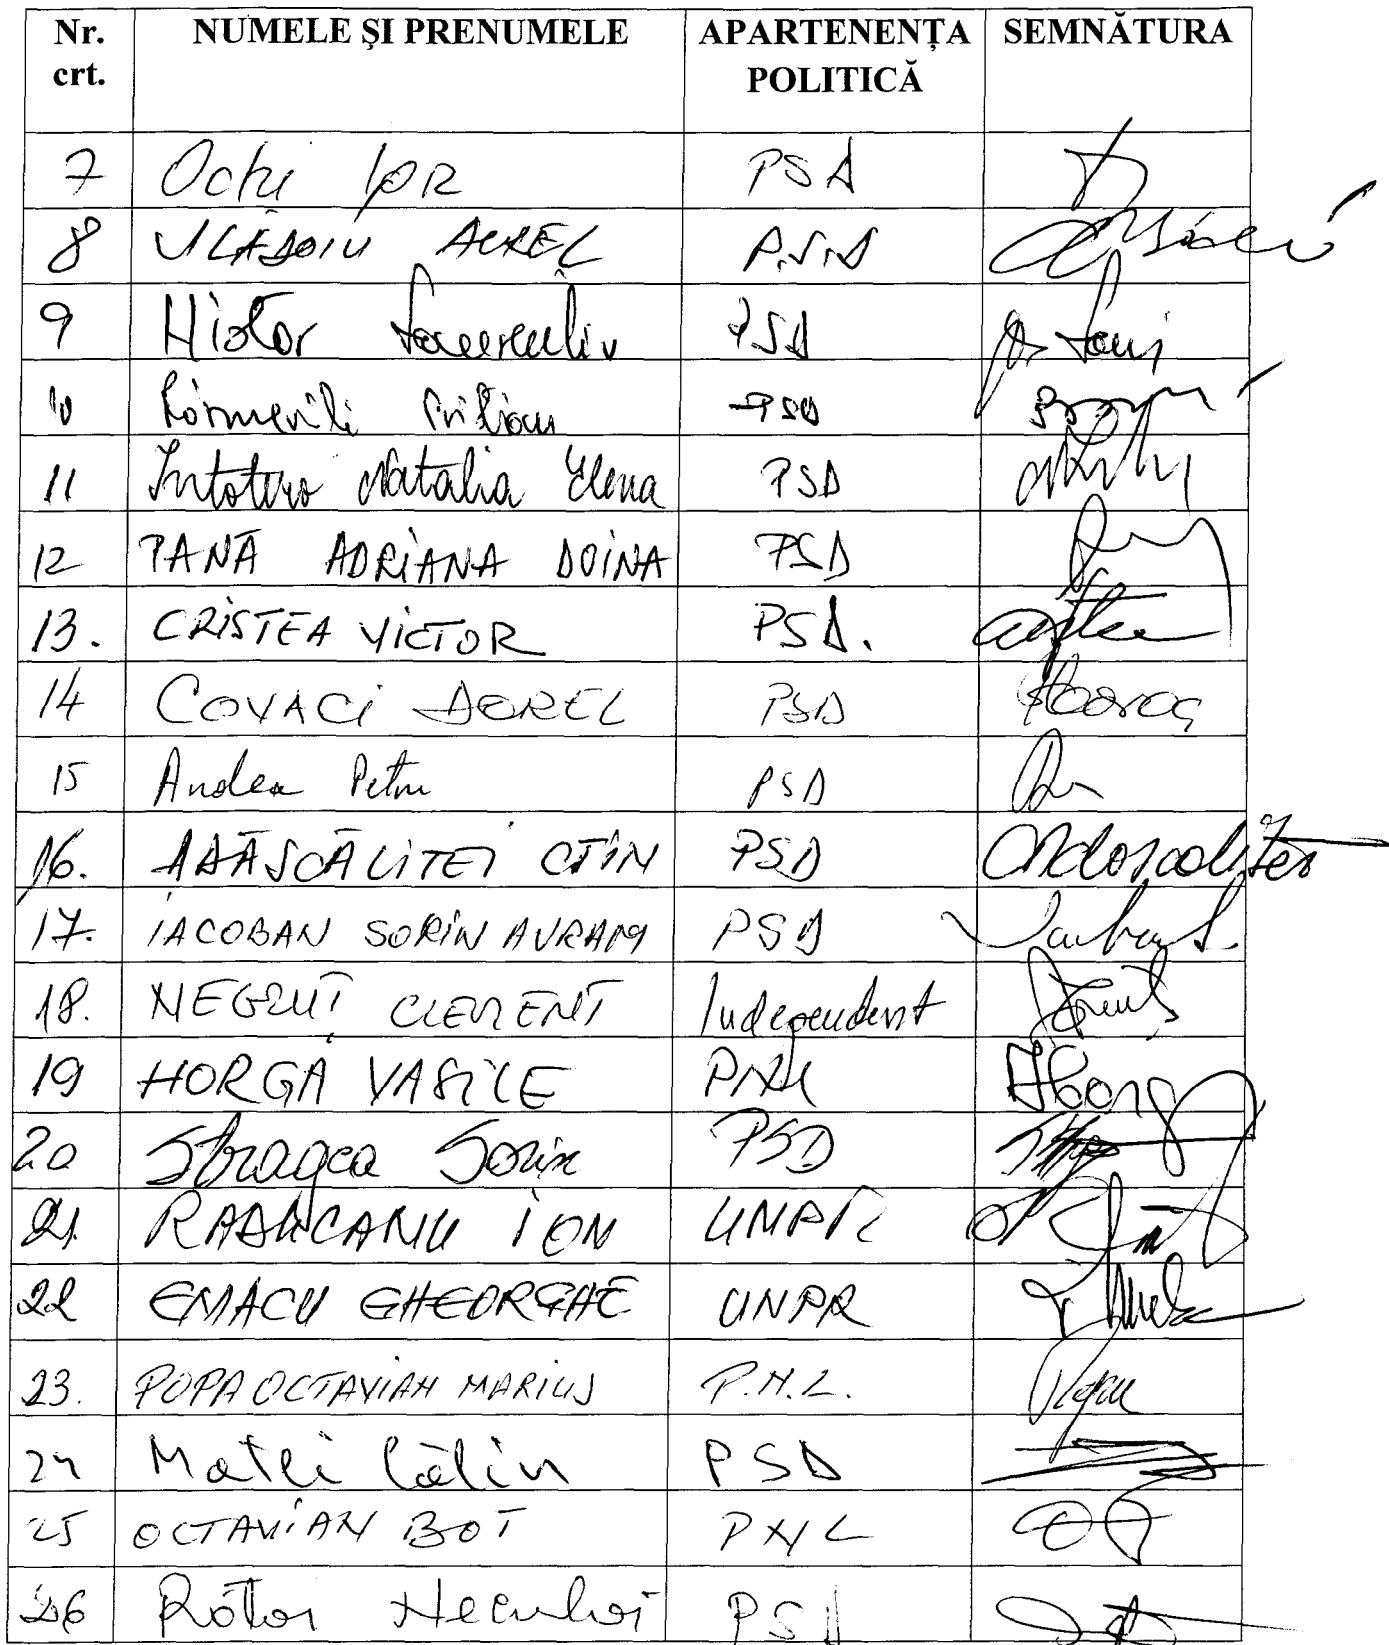 Nr. crt. NUMELE ŞI PRENUMELE APARTENENŢA POLITICĂ SEMNĂTURA
7 Ochi Ion PSD
8 VLĂDOIU AUREL P.S.D
9 Nistor PSD
10 PSD
11 Intotero Natalia Elena PSD
12 PANĂ ADRIANA DOINA PSD
13. CRISTEA VICTOR PSD.
14 COVACI DOREL PSD
15 Andea Petru PSD
16. ADĂSCĂLIȚEI CTIN PSD
17. IACOBAN SORIN AVRAM PSD
18. NEGRUȚ CLEMENT Independent
19 HORGA VASILE PNL
20 Stragea Sorin PSD
21. RADUCANU ION UNPR
22 EMACU GHEORGHE UNPR
23. POPA OCTAVIAN MARIUS P.N.L.
24 Matei Călin PSD
25 OCTAVIAN BOT PNL
26 PSD